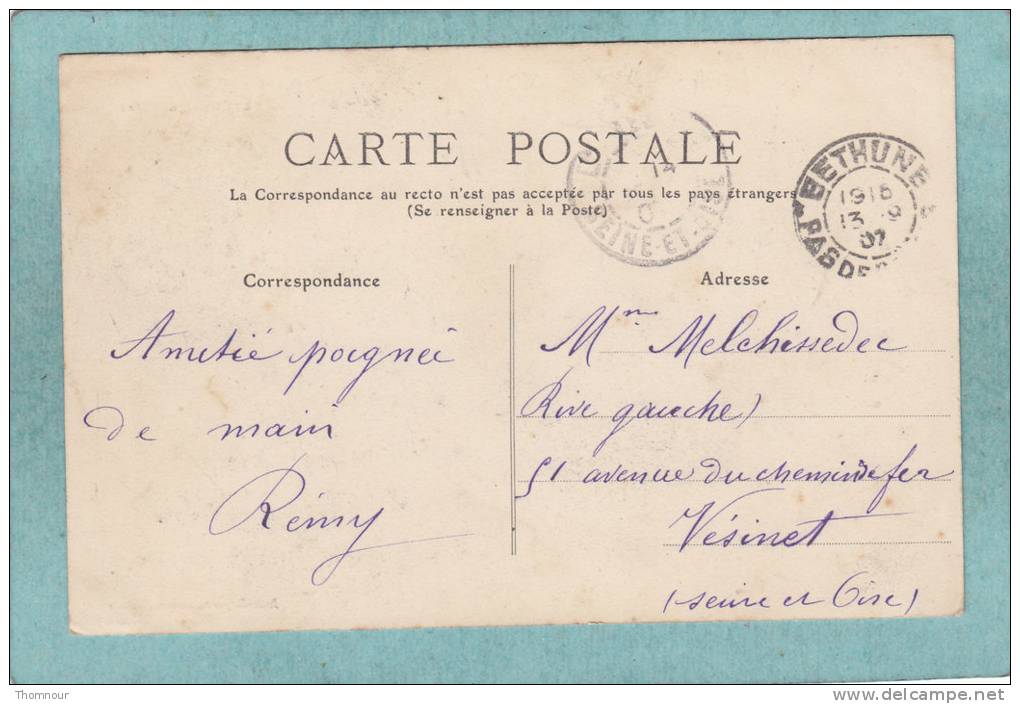 CARTE POSTALE
La Correspondance au recto n'est pas acceptée par tous les pays étrangers
(Se renseigner à la Poste)
BETHUNE
1915
13 9
07
PAS DE
14
SEINE-ET-OISE
Correspondance
Amitié poignée
de main
Rémy
Adresse
Mme Melchissedec
Rive gauche)
51 avenue du chemin de fer
Vésinet
(Seine et Oise)
Thomnour
www.delcampe.net